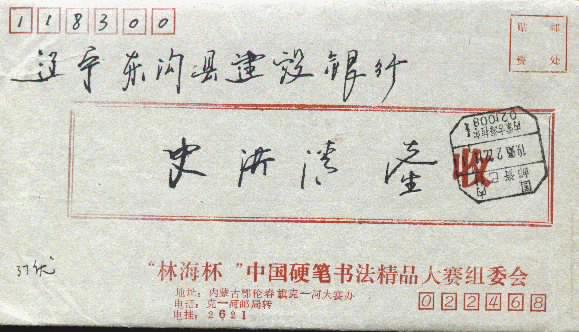 118300
贴邮
票处
辽宁东沟县建设银行
史洪清 鉴
收
国内
邮资已付
内蒙古海拉尔
021008
37代
“林海杯”中国硬笔书法精品大赛组委会
地址：内蒙古鄂伦春旗克一河大赛办
电话：克一河邮局转
电挂：2621
022468